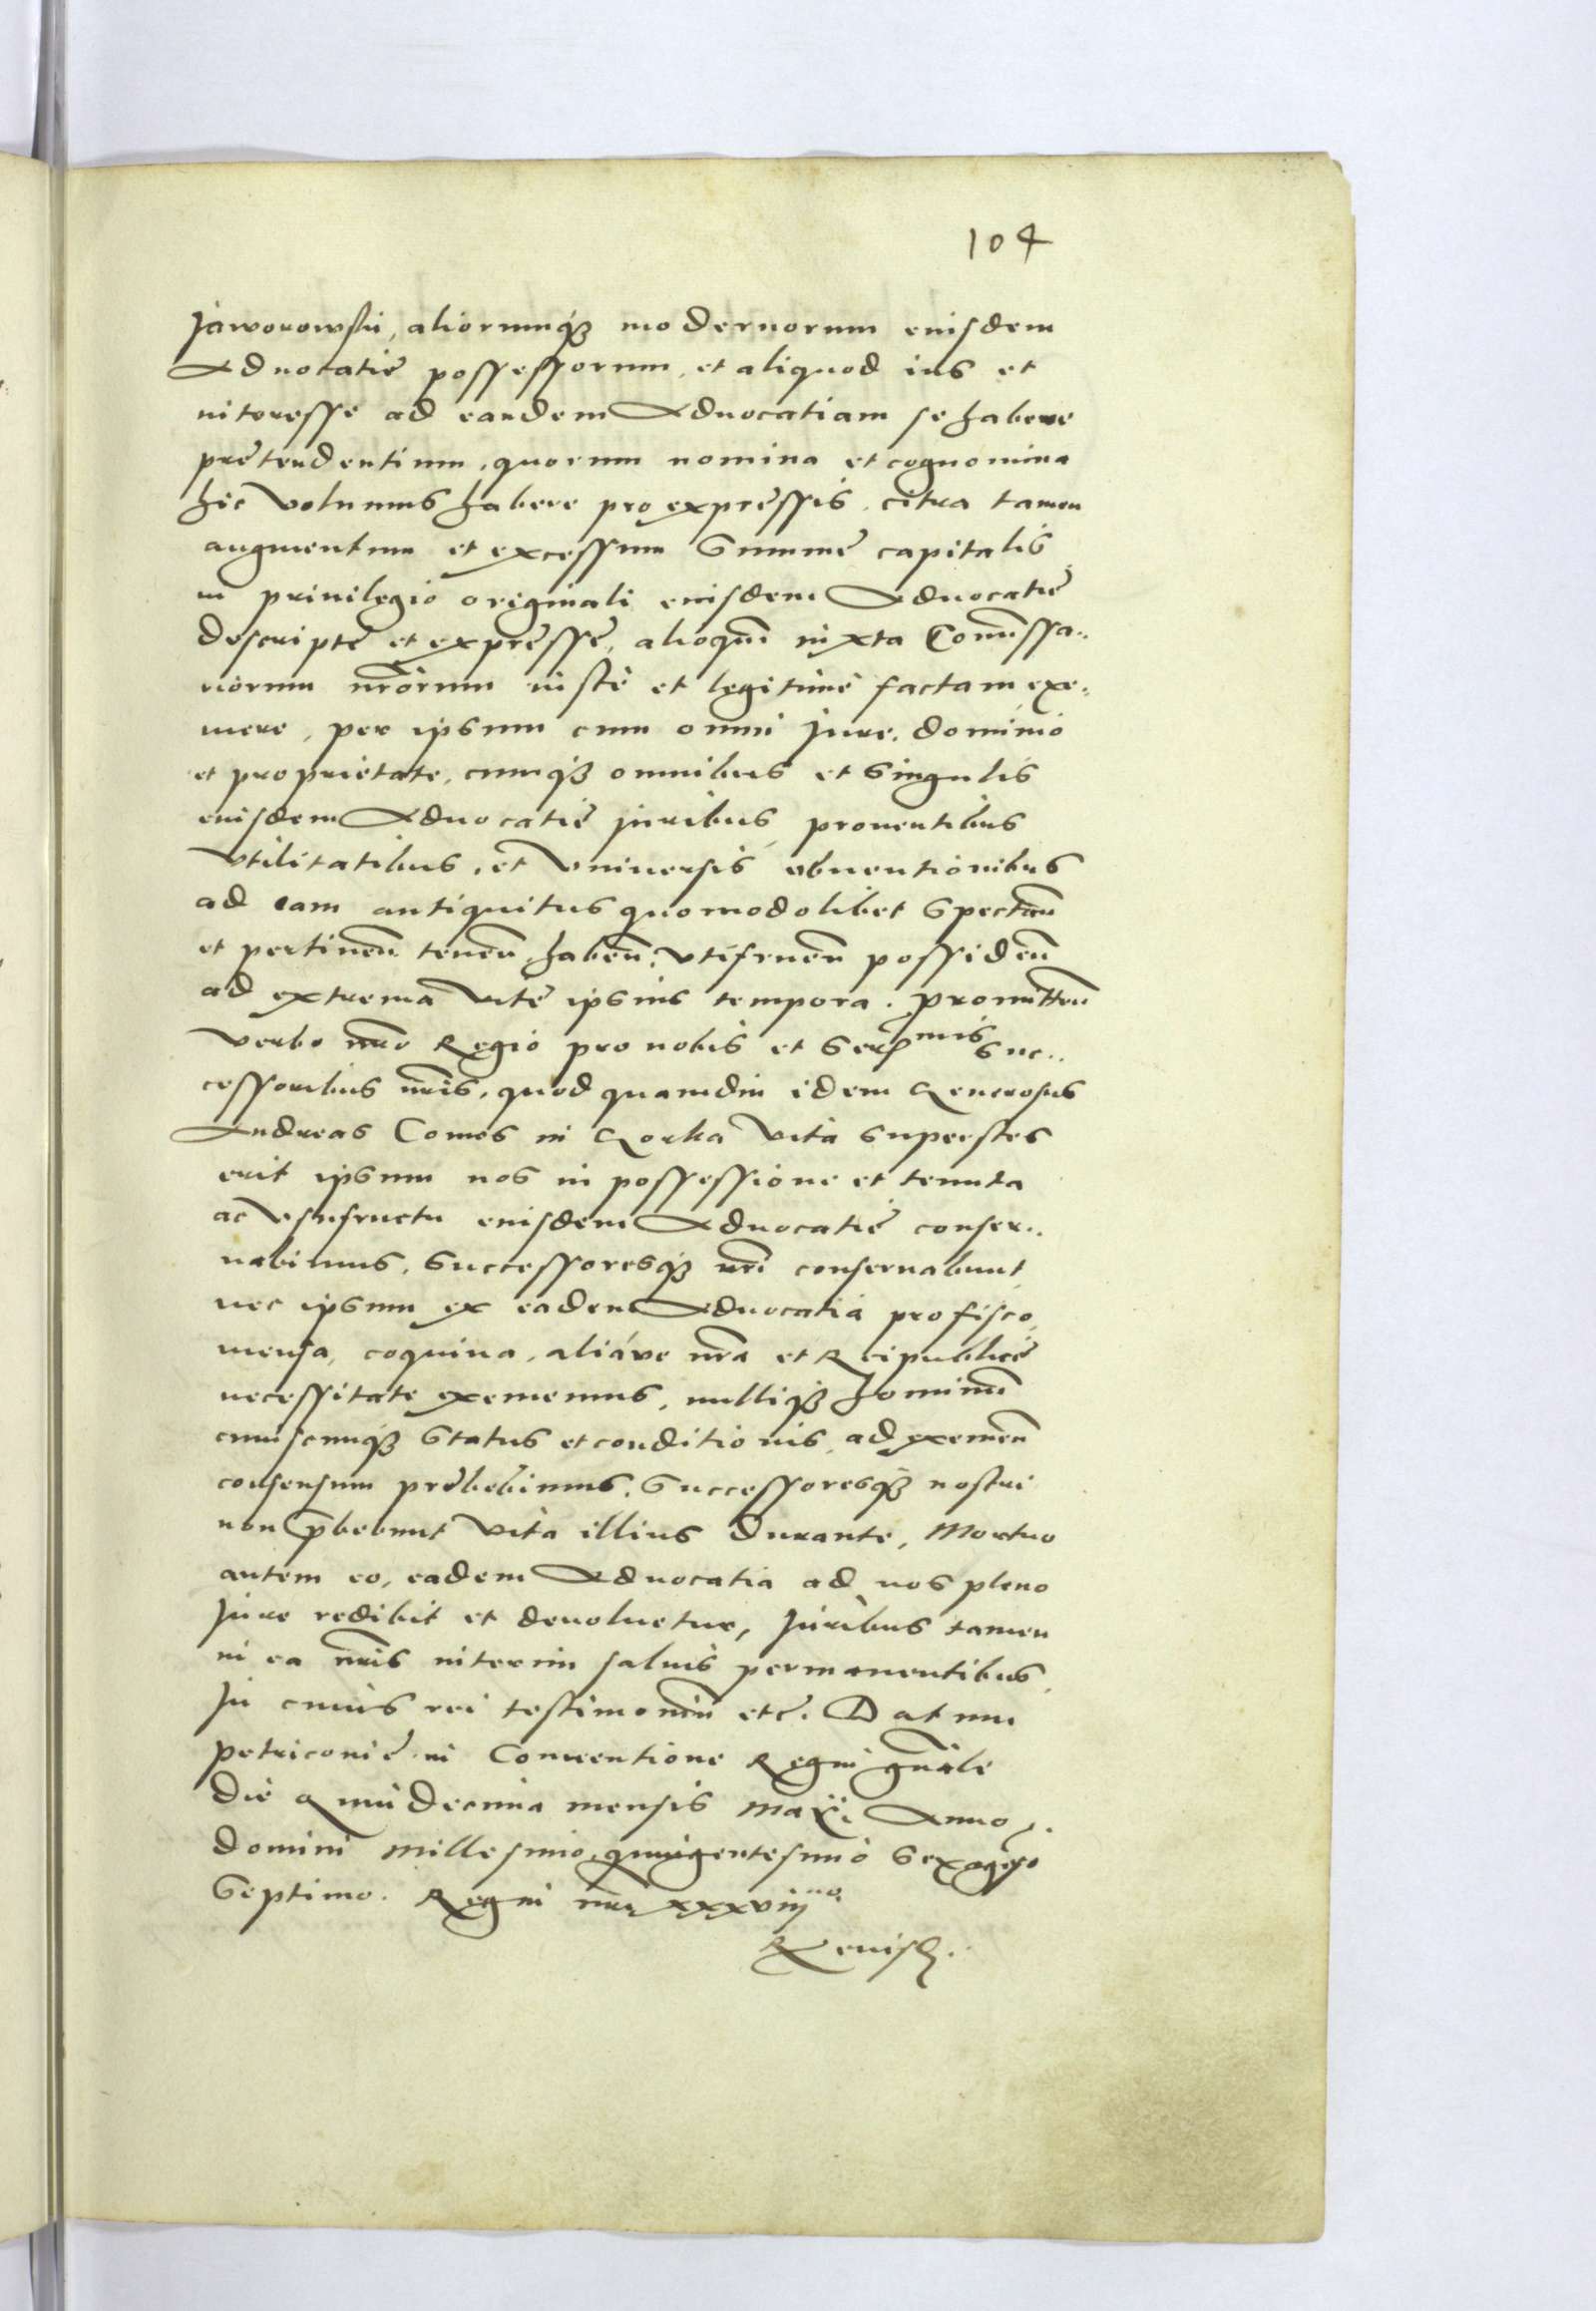 104
Jaworowski, aliorumq₃ modernorum eiusdem
Aduocatię possessorum, et aliquod ius et
interesse ad eandem Aduocatiam se habere
prętendentium, quorum nomina et cognomina
hic volumus habere pro expressis, citra tamen
augmentum et excessum Summę capitalis
in priuilegio originali eiusdem Aduocatię
descriptę et expressę, alioqui iuxta Comissa..
riorum nrorum iustè et legitimè factam exe,
mere, per ipsum cum omni Jure, dominio
et proprietate, cumq₃ omnibus et Singulis
eiusdem Aduocatię juribus, prouentibus
vtilitatibus, et vniuersis obuentionibus
ad eam antiquitus quomodolibet Spectan
et pertinen tenen, haben, vtifruen possiden
ad extrema vitę ipsius tempora. Promitten
verbo nro Regio pro nobis et Sermis Suc..
cessoribus nris, quod quamdiu idem Generosus
Andreas Comes in Gorka vita Superstes
erit ipsum nos in possessione et tenuta
ac vsufructu eiusdem Aduocatię conser..
uabimus, Successoresq₃ nri conseruabunt,
nec ipsum ex eadem Aduocatia pro fisco,
mensa, coquina, aliáve nra et Reipublicę
necessitate exememus, nulliq₃ hominu
cuiuscumq₃ Status et conditionis ad eximen
consensum prębebimus, Successoresq₃ nostri
non pbebunt vita illius durante, Mortuo
autem eo, eadem Aduocatia ad nos pleno
Jure redibit et deuoluetur, Juribus tamen
in ea nris interim saluis permanentibus,
In cuius rei testimoniu etc. Datum
Petricouię in Conuentione Regni gnali
die Quindecima mensis Maij Anno
domini Millesimo quingentesimo Sexageso
Septimo. Regni nri xxxviijno
Reuis.